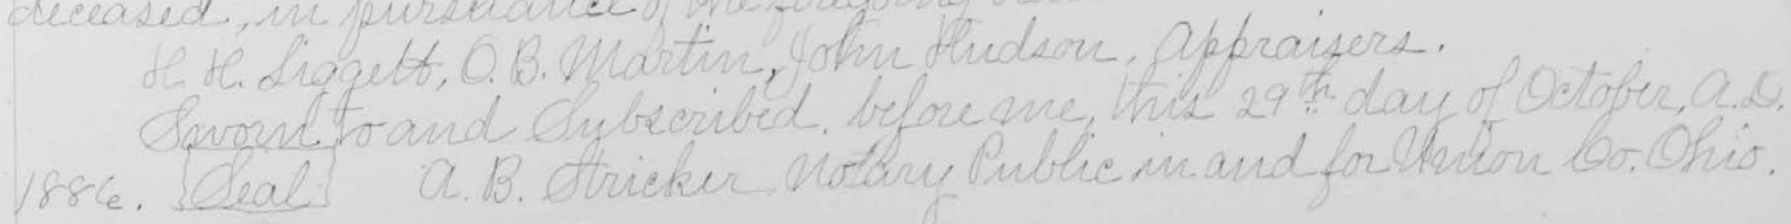 deceased, in pursuance of the foregoing
H. H. Liggett, O. B. Martin, John Hudson, Appraisers.
Sworn to and Subscribed, before me, this 29th day of October, A.D.
1886. Seal A. B. Stricker Notary Public in and for Union Co. Ohio.